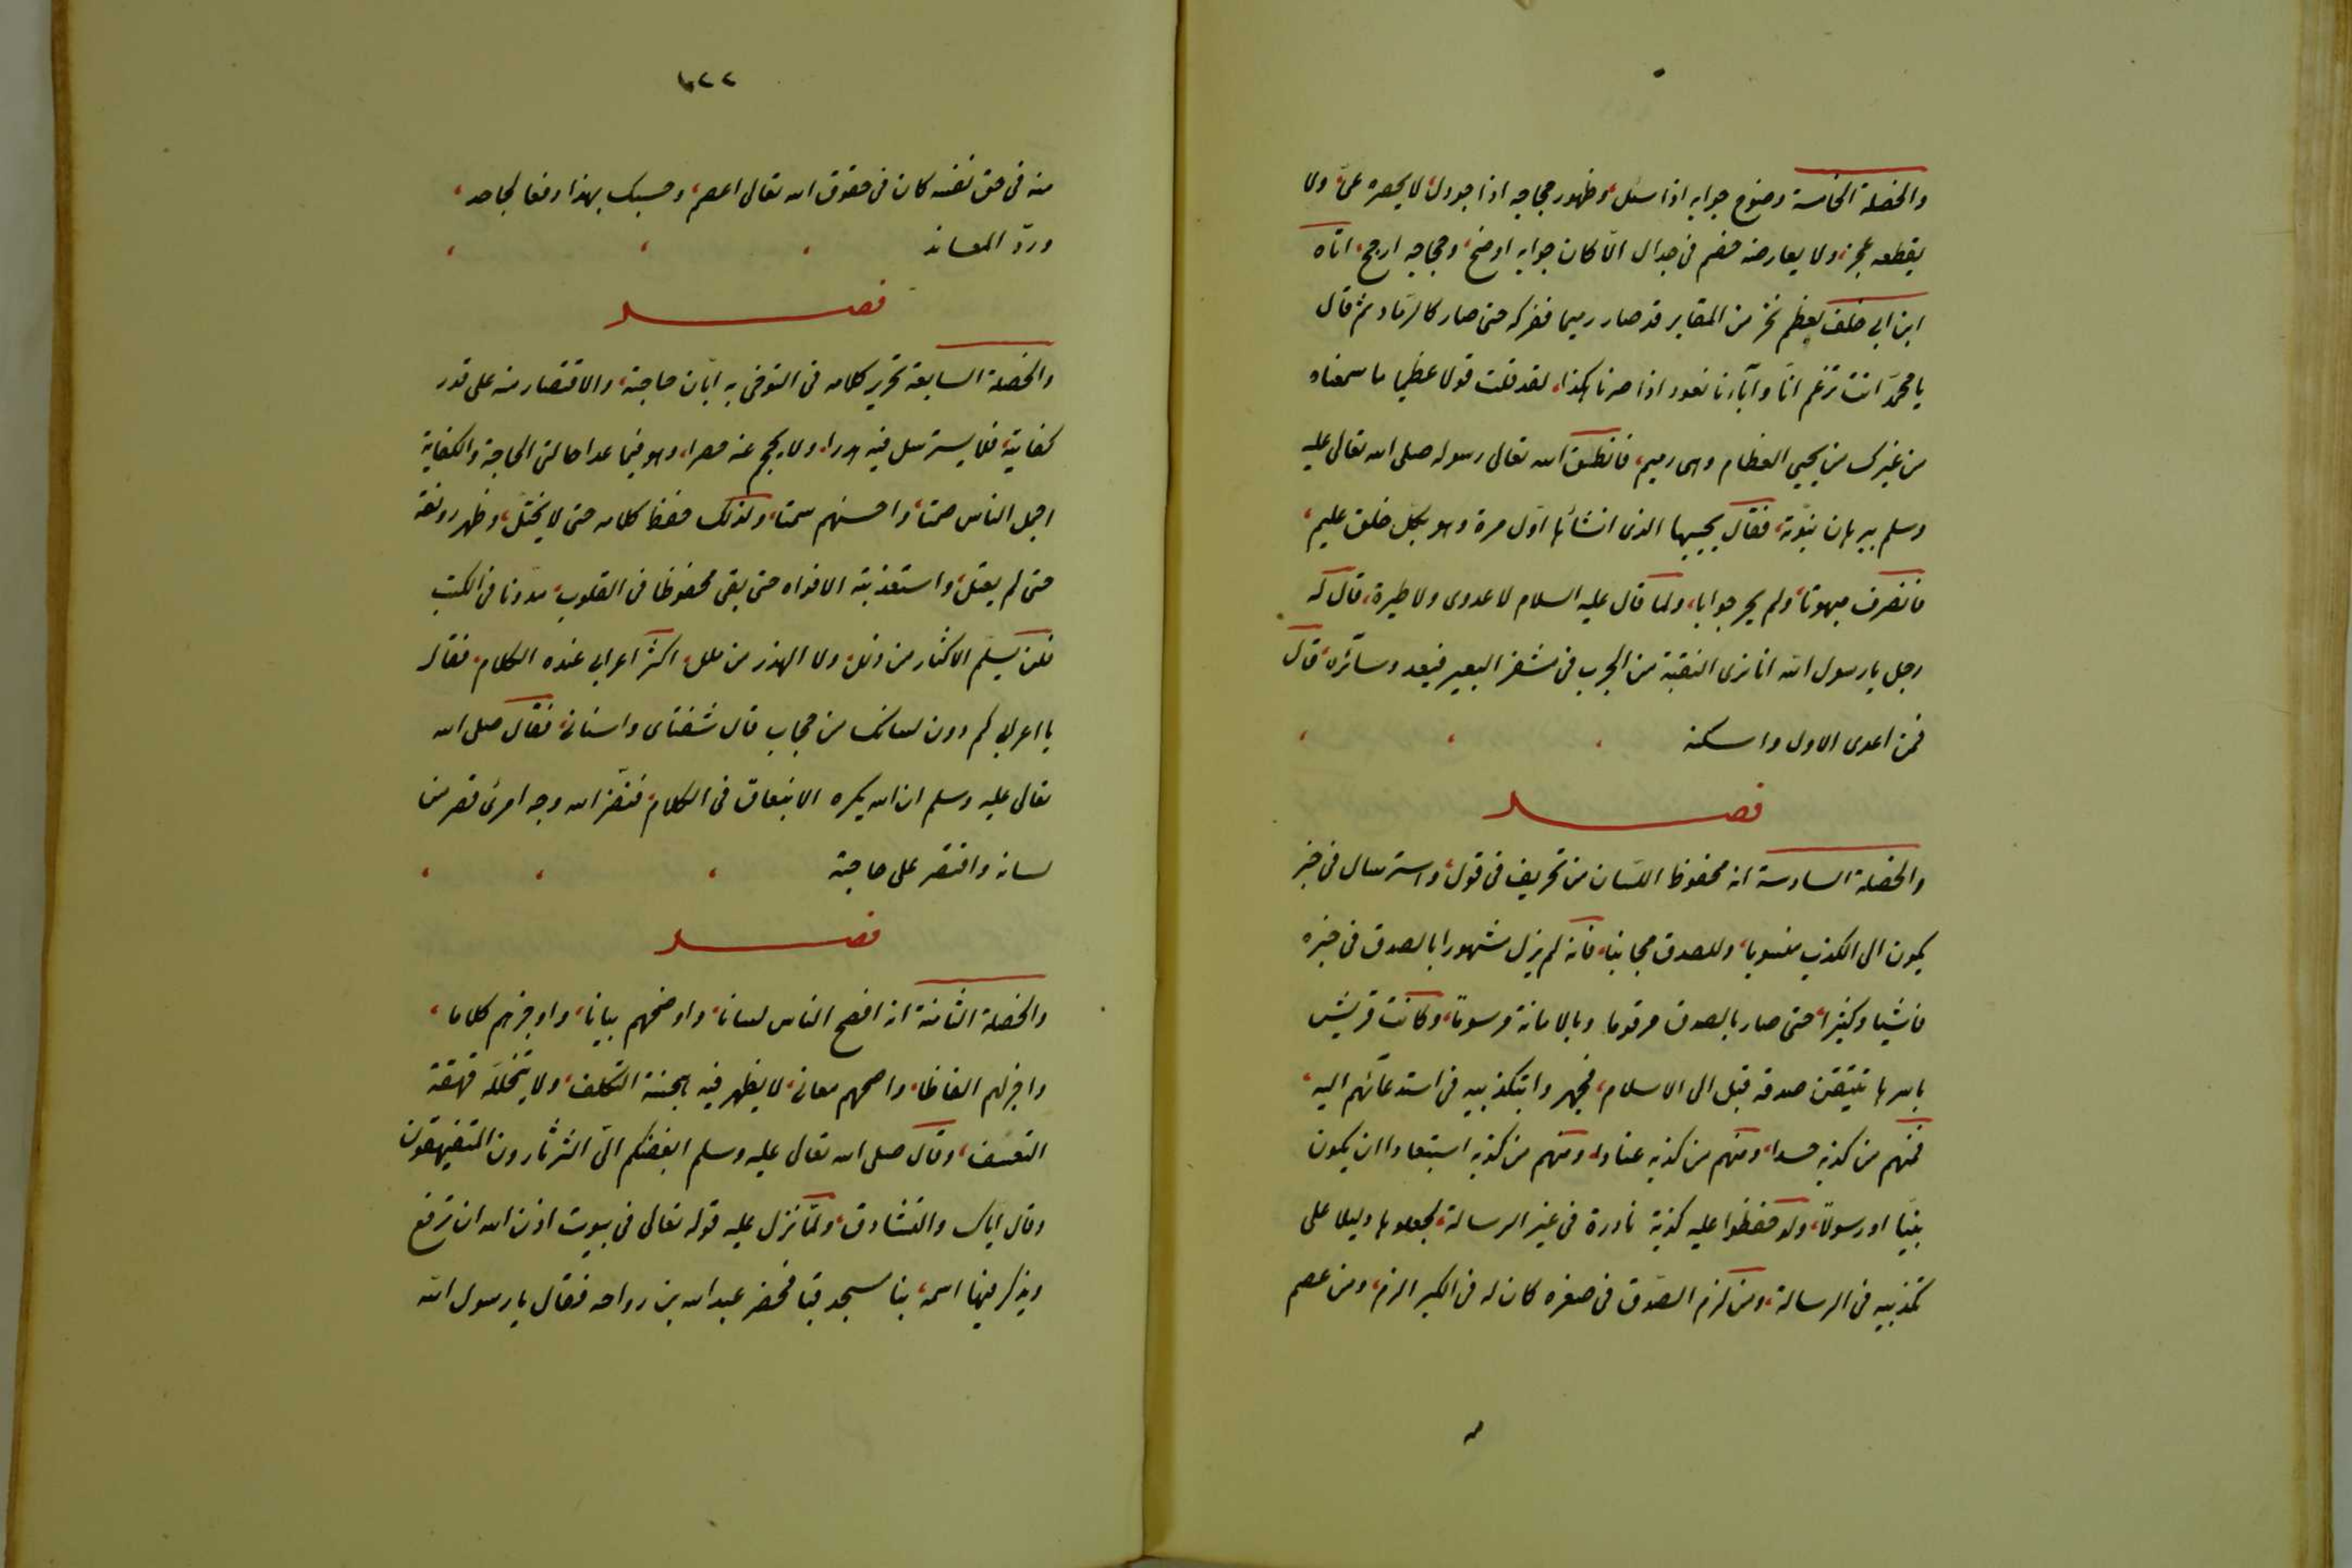 والخصلة الخامسة وضوح جوابه اذا سئل، وظهور حجاجه اذا جودل، لا يحصره عىّ، ولا
يقطعه عجز، ولا يعارضه خصم فى جدال الّا كان جوابه اوضح، وحجاجه ارجح، اتاه
ابن ابى خلف بعظم نخر من المقابر قد صار رميما ففركه حتى صار كالرّماد ثم قال
يا محمّد انت تزعم انّا وآباءنا نعود اذا صرنا هكذا، لقد قلت قولا عظيما ما سمعناه
من غيرك من يحيى العظام وهى رميم، فانطق الله تعالى رسوله صلى الله تعالى عليه
وسلم ببرهان نبوّته، فقال يحييها الذى انشأها اوّل مرة وهو بكلّ خلق عليم،
فانصرف مبهوتا، ولم يحر جوابا، ولما قال عليه السلام لا عدوى ولا طيرة، قال له
رجل يا رسول الله انا نرى النقبة من الجرب فى مشفر البعير فيعدو سائره، قال
فمن اعدى الاول واسكته
فصل
والخصلة السادسة انه محفوظ اللسان من تحريف فى قول، واسترسال فى خبر
يكون الى الكذب منسوبا، وللصدق مجانبا، فانه لم يزل مشهورا بالصدق فى خبره
فاشيا وكثيرا، حتى صار بالصدق مرقوما وبالامانة مرسوما، وكانت قريش
باسرها تتيقن صدقه قبل الى الاسلام، فجهروا بتكذيبه فى استدعائهم اليه،
فمنهم من كذبه حسدا، ومنهم من كذبه عنادا، ومنهم من كذبه استبعادا ان يكون
نبيّا او رسولا، ولو حفظوا عليه كذبة نادرة فى غير الرسالة، لجعلوها دليلا على
تكذيبه فى الرسالة، ومن لزم الصّدق فى صغره كان له فى الكبر الزم، ومن عصم
١٠٢٢
منه فى حق نفسه كان فى حقوق الله تعالى اعصم، وحسبك بهذا دفعا لجاحد،
وردّ المعاند
فصل
والخصلة السابعة تحرير كلامه فى التوخى به ابّان حاجته، والاقتصار منه على قدر
كفايته، فلا يسترسل فيه هدرا، ولا يحجم عنه حصرا، وهو فيما عدا حالتى الحاجة والكفاية
اجمل الناس صمتا، واحسنهم سمتا، ولذلك حفظ كلامه حتى لا يختلّ، وظهر رونقه
حتى لم يعتلّ، واستعذبته الافواه حتى بقى محفوظا فى القلوب، مدوّنا فى الكتب
فلن يسلم الاكثار من زلل، ولا الهذر من ملل، اكثر اعرابى عنده الكلام، فقال
يا اعرابى كم دون لسانك من حجاب قال شفتاى واسنانى، فقال صلى الله
تعالى عليه وسلم ان الله يكره الانبعاق فى الكلام، فنضّر الله وجه امرئ قصر من
لسانه واقتصر على حاجته
فصل
والخصلة الثامنة انه افصح الناس لسانا، واوضحهم بيانا، واوجزهم كلاما،
واجزلهم الفاظا، واصحهم معانى، لا يظهر فيه هجنة التكلّف، ولا يتخلله فيهقة
التعسّف، وقال صلى الله تعالى عليه وسلم ابغضكم الىّ الثرثارون المتفيهقون
وقال ايّاك والتشادق، ولمّا نزل عليه قوله تعالى فى بيوت اذن الله ان ترفع
ويذكر فيها اسمه، بنا مسجد قبا فحضر عبد الله بن رواحه فقال يا رسول الله